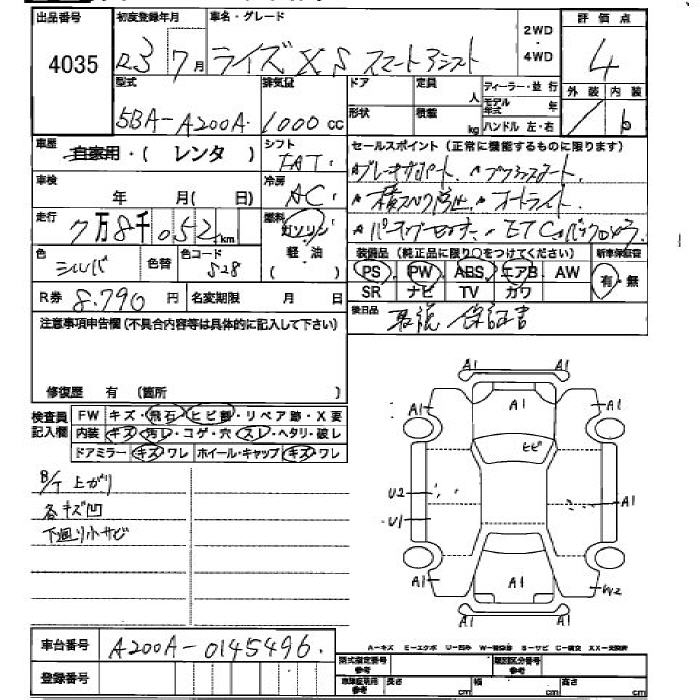 出品番号 初度登録年月 車名・グレード 2WD・4WD 評価点
4035 R3 7月 ライズ X S スマートアシスト 4
型式 排気量 ドア 定員 人 ディーラー・並行 外装 内装
5BA-A200A 1000cc 形状 積載 kg モデル年式 年 ハンドル 左・右
車歴 自家用・(レンタ) シフト IAT セールスポイント(正常に機能するものに限ります)
車検 年 月(日) 冷房 AC ・ブレーキサポート ・プッシュスタート
・横スベリ防止 ・オートライト
走行 7万8千052km 燃料 ガソリン・軽・油 ・ETC・バックカメラ
色 シルバ 色替 色コード S28 装備品(純正品に限り○をつけてください) 新車保証書
PS PW ABS エアB AW 有・無
SR ナビ TV カワ
R券 8,790円 名変期限 月 日 後日品 取説 保証書
注意事項申告欄(不具合内容等は具体的に記入して下さい)
修復歴 有(箇所 )
検査員記入欄 FW キズ・飛石・ヒビ割・リペア跡・X要
内装 キズ・汚レ・コゲ・穴・スレ・ヘタリ・破レ
ドアミラー キズ・ワレ ホイール・キャップ キズ・ワレ
B/T 上がり
各キズ凹
下廻り小サビ
A1 A1
A1 A1 A1
ヒビ
U2 A1
U1
A1 A1 W2
A1 A1
車台番号 A200A-0145496
登録番号
A-キズ E-エクボ U-凹み S-サビ
型式指定番号 類別区分番号
参考 長さ cm 幅 cm 高さ cm